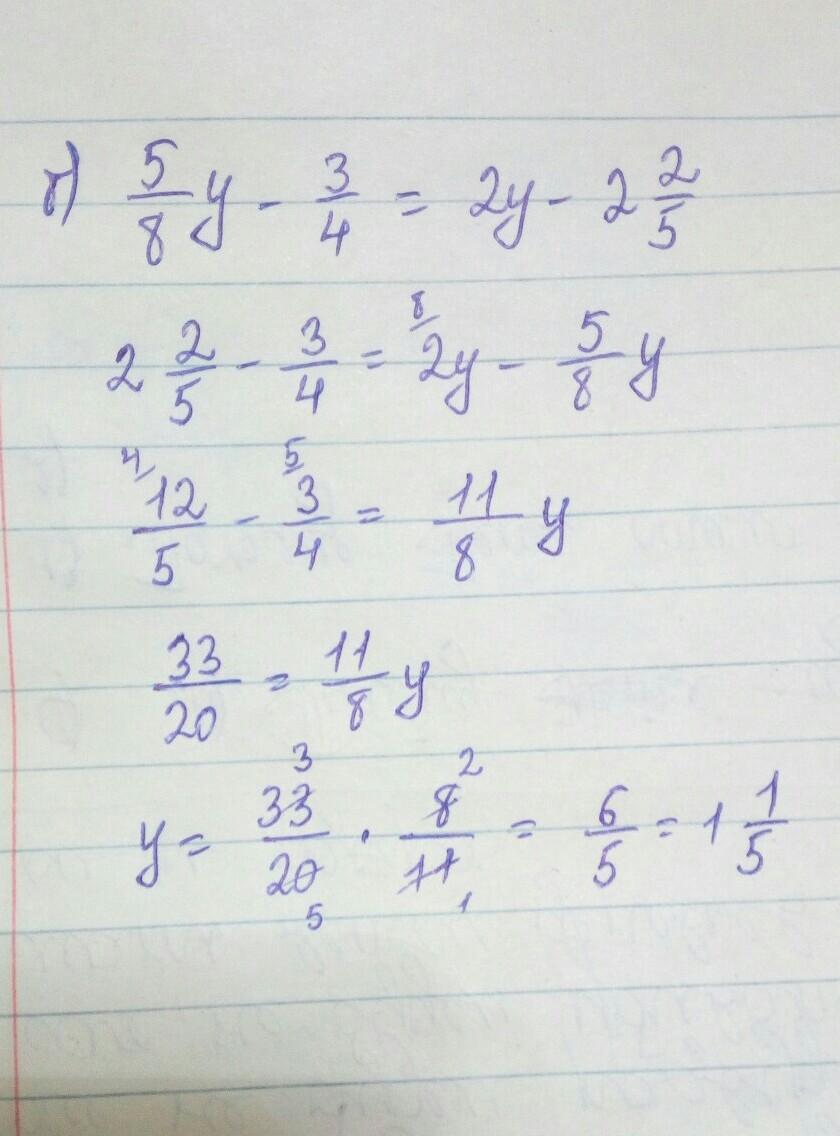 г) 5/8 y - 3/4 = 2y - 2 2/5
2 2/5 - 3/4 = 8/ 2y - 5/8 y
4/ 12/5 - 5/ 3/4 = 11/8 y
33/20 = 11/8 y
y = 33/20 · 8/11 = 6/5 = 1 1/5